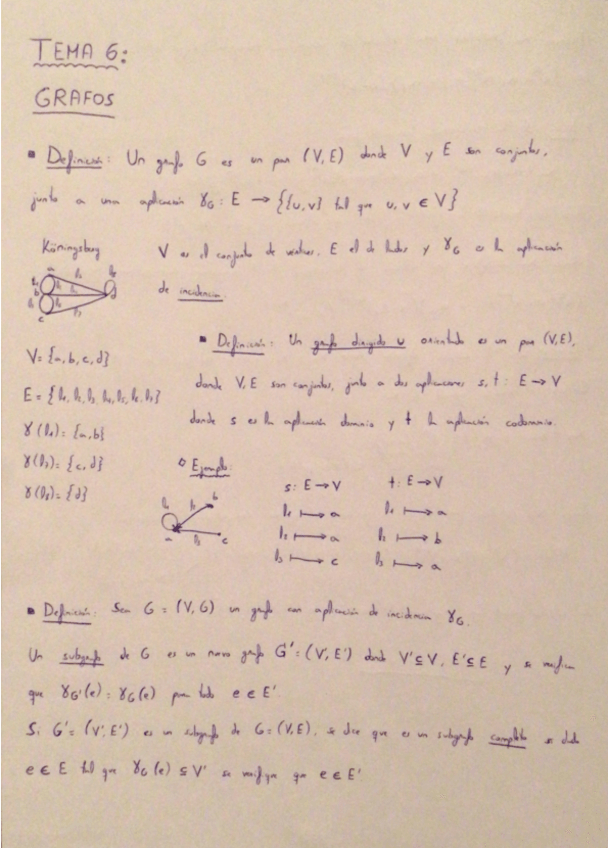 TEMA 6:
GRAFOS
▪ Definición: Un grafo G es un par (V, E) donde V y E son conjuntos,
junto a una aplicación γG : E → {{u, v} tal que u, v ∈ V}
Köningsberg
V es el conjunto de vértices, E el de lados y γG es la aplicación
de incidencia.
a
b
c
d
V = {a, b, c, d}
E = {l₁, l₂, l₃, l₄, l₅, l₆, l₇, l₈}
γ(l₁) = {a, b}
γ(l₇) = {c, d}
γ(l₈) = {d}
▪ Definición: Un grafo dirigido u orientado es un par (V, E),
donde V, E son conjuntos, junto a dos aplicaciones s, t : E → V
donde s es la aplicación dominio y t la aplicación codominio.
◇ Ejemplo:
l₁ l₂ b
a l₃ c
s: E → V t: E → V
l₁ ↦ a l₁ ↦ a
l₂ ↦ a l₂ ↦ b
l₃ ↦ c l₃ ↦ a
▪ Definición: Sea G = (V, G) un grafo con aplicación de incidencia γG.
Un subgrafo de G es un nuevo grafo G' = (V', E') donde V' ⊆ V, E' ⊆ E y se verifica
que γG'(e) = γG(e) para todo e ∈ E'.
Si G' = (V', E') es un subgrafo de G = (V, E), se dice que es un subgrafo completo si dado
e ∈ E tal que γG(e) ⊆ V' se verifique que e ∈ E'